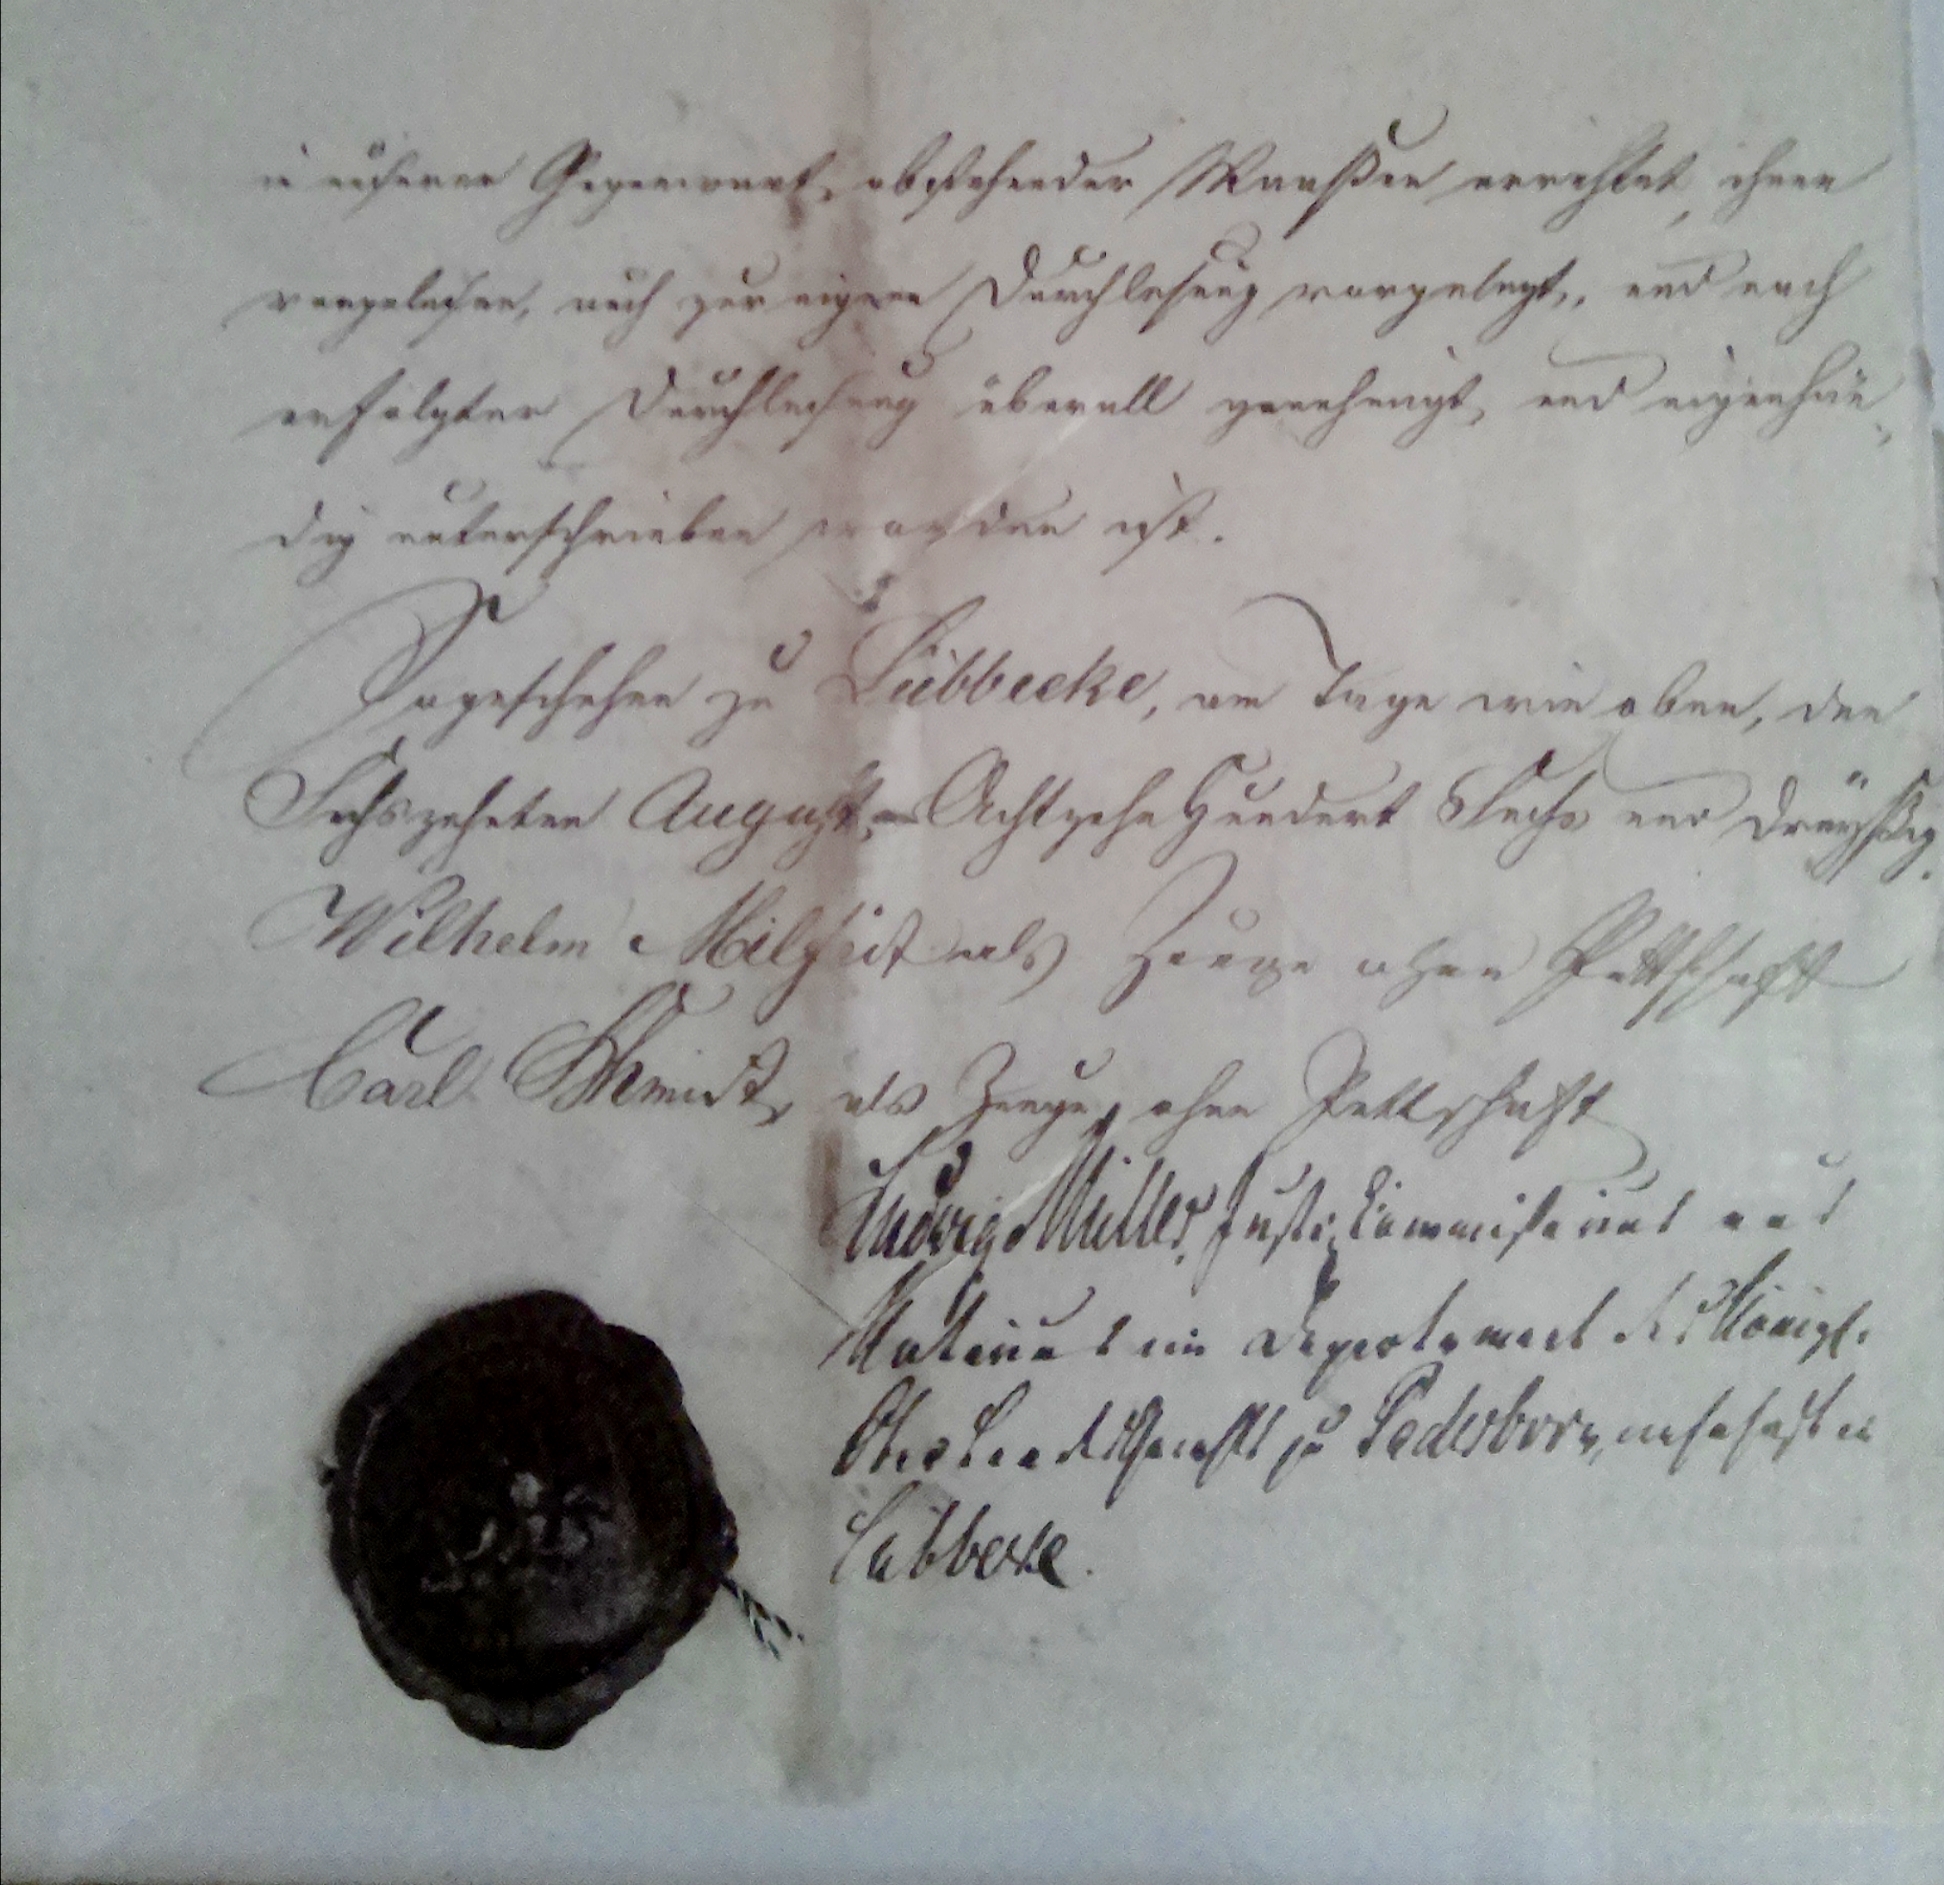 in unserer Gegenwart, obstehender Maaßen errichtet, ihnen
vorgelesen, auch zur eigenen Durchlesung vorgelegt, und nach
erfolgter Durchlesung überall genehmigt, und eigenhän-
dig unterschrieben worden ist.
So geschehen zu Lübbecke, am Tage wie oben, den
Sechszehnten August, Achtzehn Hundert Sechs und dreyßig.
Wilhelm als Zeuge ohne Pettschaft
Carl Schmidt, als Zeuge, ohne Pettschaft
Ludwig Müller, Justiz Commissarius und
Notarius im Departement des Königl.
Ober Landes Gerichts zu Paderborn, wohnhaft in
Lübbecke.